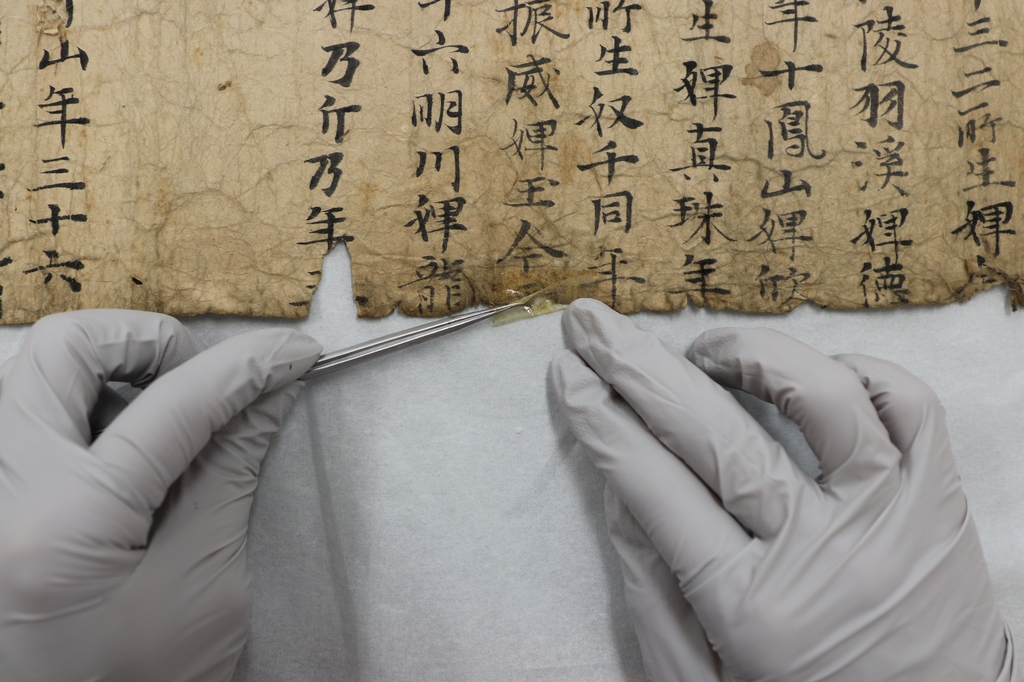 三二所生婢
陵羽溪婢德
年十鳳山婢欣
生婢真珠年
所生奴千同年
振威婢玉今
六明川婢龍
婢乃斤乃年
山年三十六